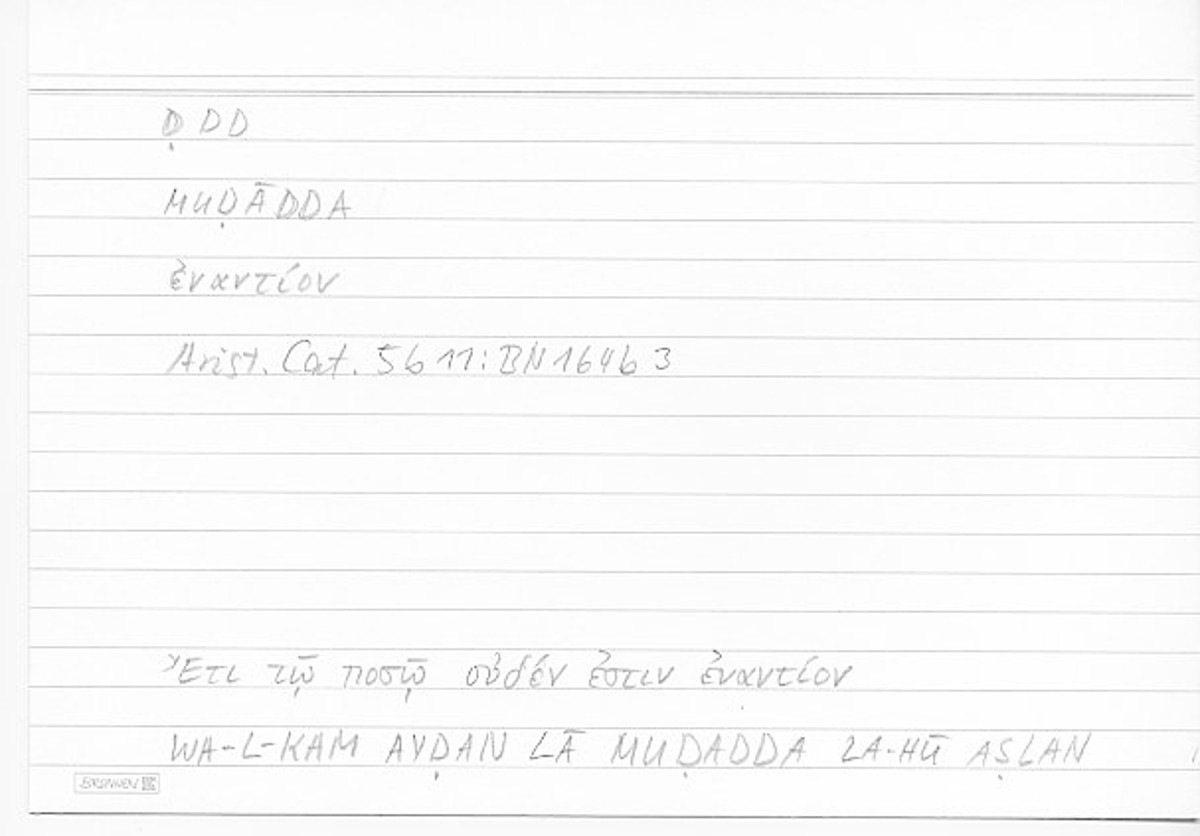 ḌDD
MUḌĀDDA
ἐναντίον
Arist. Cat. 5b11: BN 164b3
Ἔτι τῷ ποσῷ οὐδέν ἐστιν ἐναντίον
WA-L-KAM AYḌAN LĀ MUḌADDA LA-HŪ AṢLAN
BRUNNEN